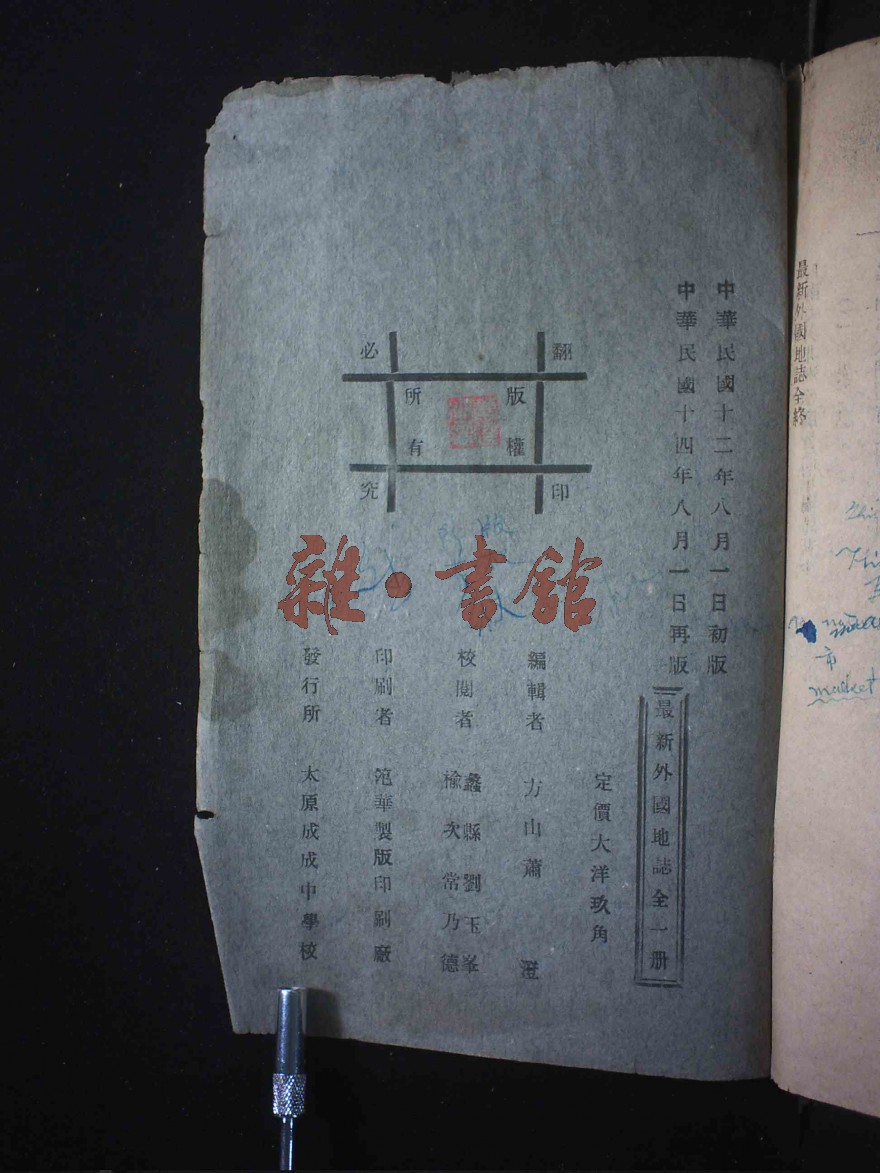 最新外國地誌全終
中華民國十二年八月一日初版
中華民國十四年八月一日再版
最新外國地誌全一册
定價大洋玖角
翻印
必究
版權
所有
編輯者 方山蕭澄
校閱者 蠡縣劉玉峯
榆次常乃德
印刷者 範華製版印刷廠
發行所 太原成成中學校
雜·書館
市
market